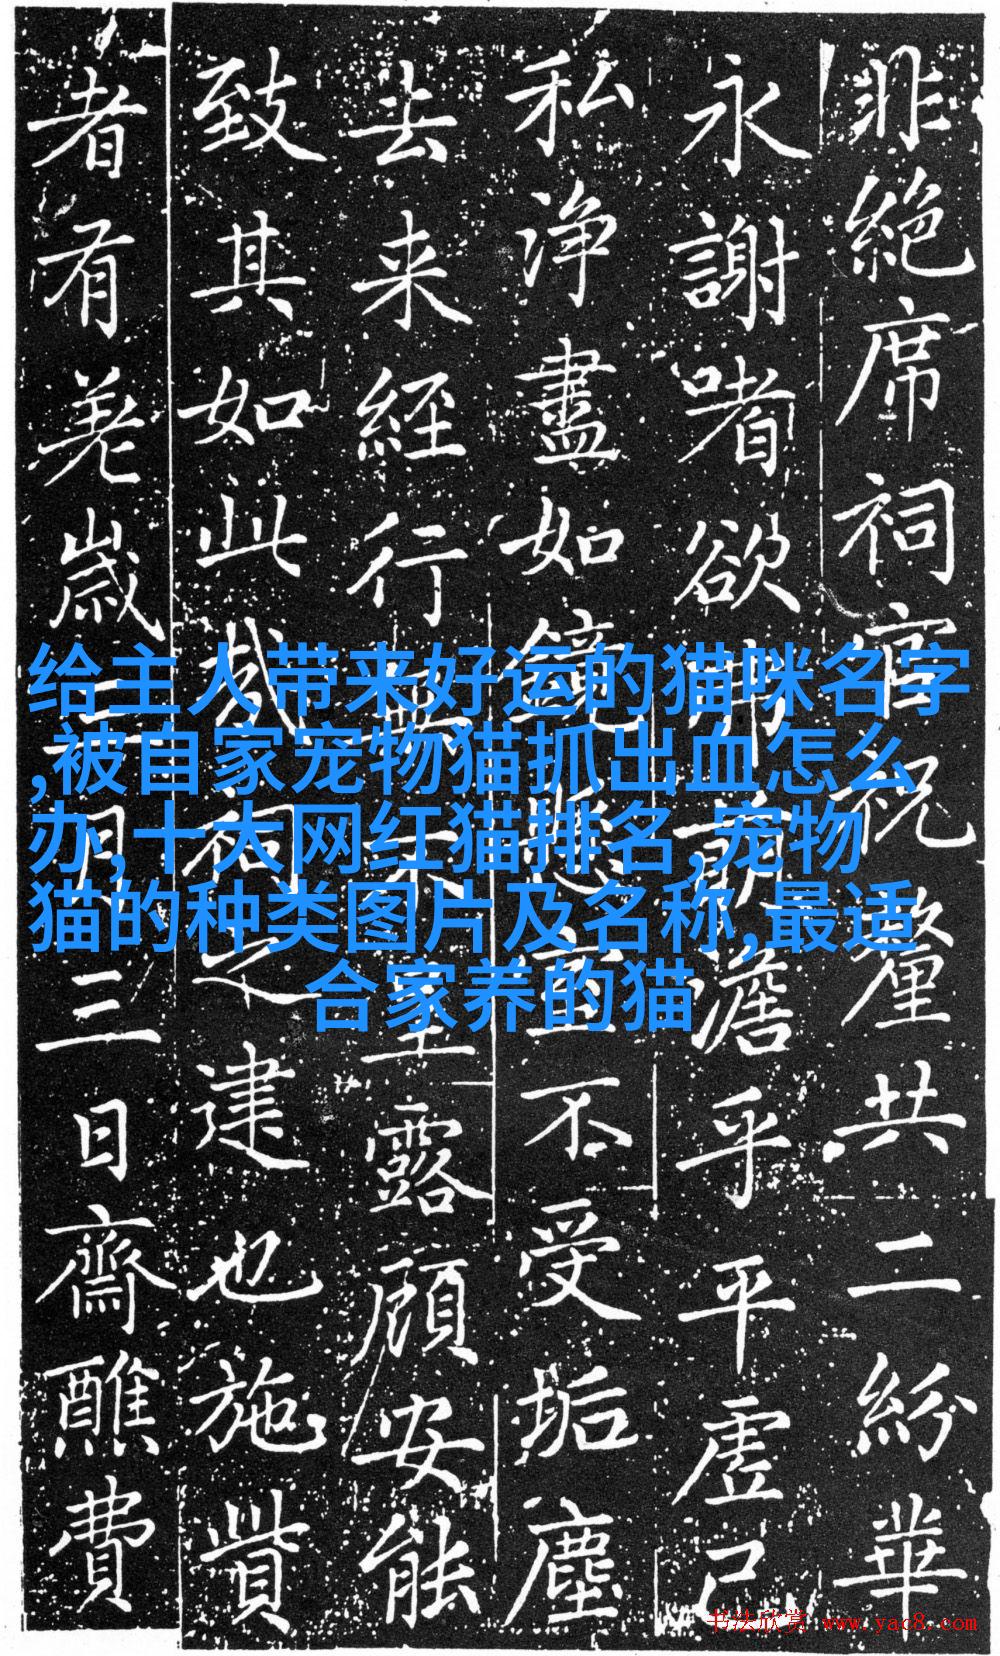 非絕席祠官祝釐共二紛華
永謝嗜欲澹乎平虛己
私淨盡如鏡不受垢塵
去来経行露顧安能
致其如此建也施貲
者有羌歲三日齋醮費
给主人带来好运的猫咪名字
,被自家宠物猫抓出血怎么
办,十大网红猫排名,宠物
猫的种类图片及名称,最适
合家养的猫
书法欣赏 www.yac8.com